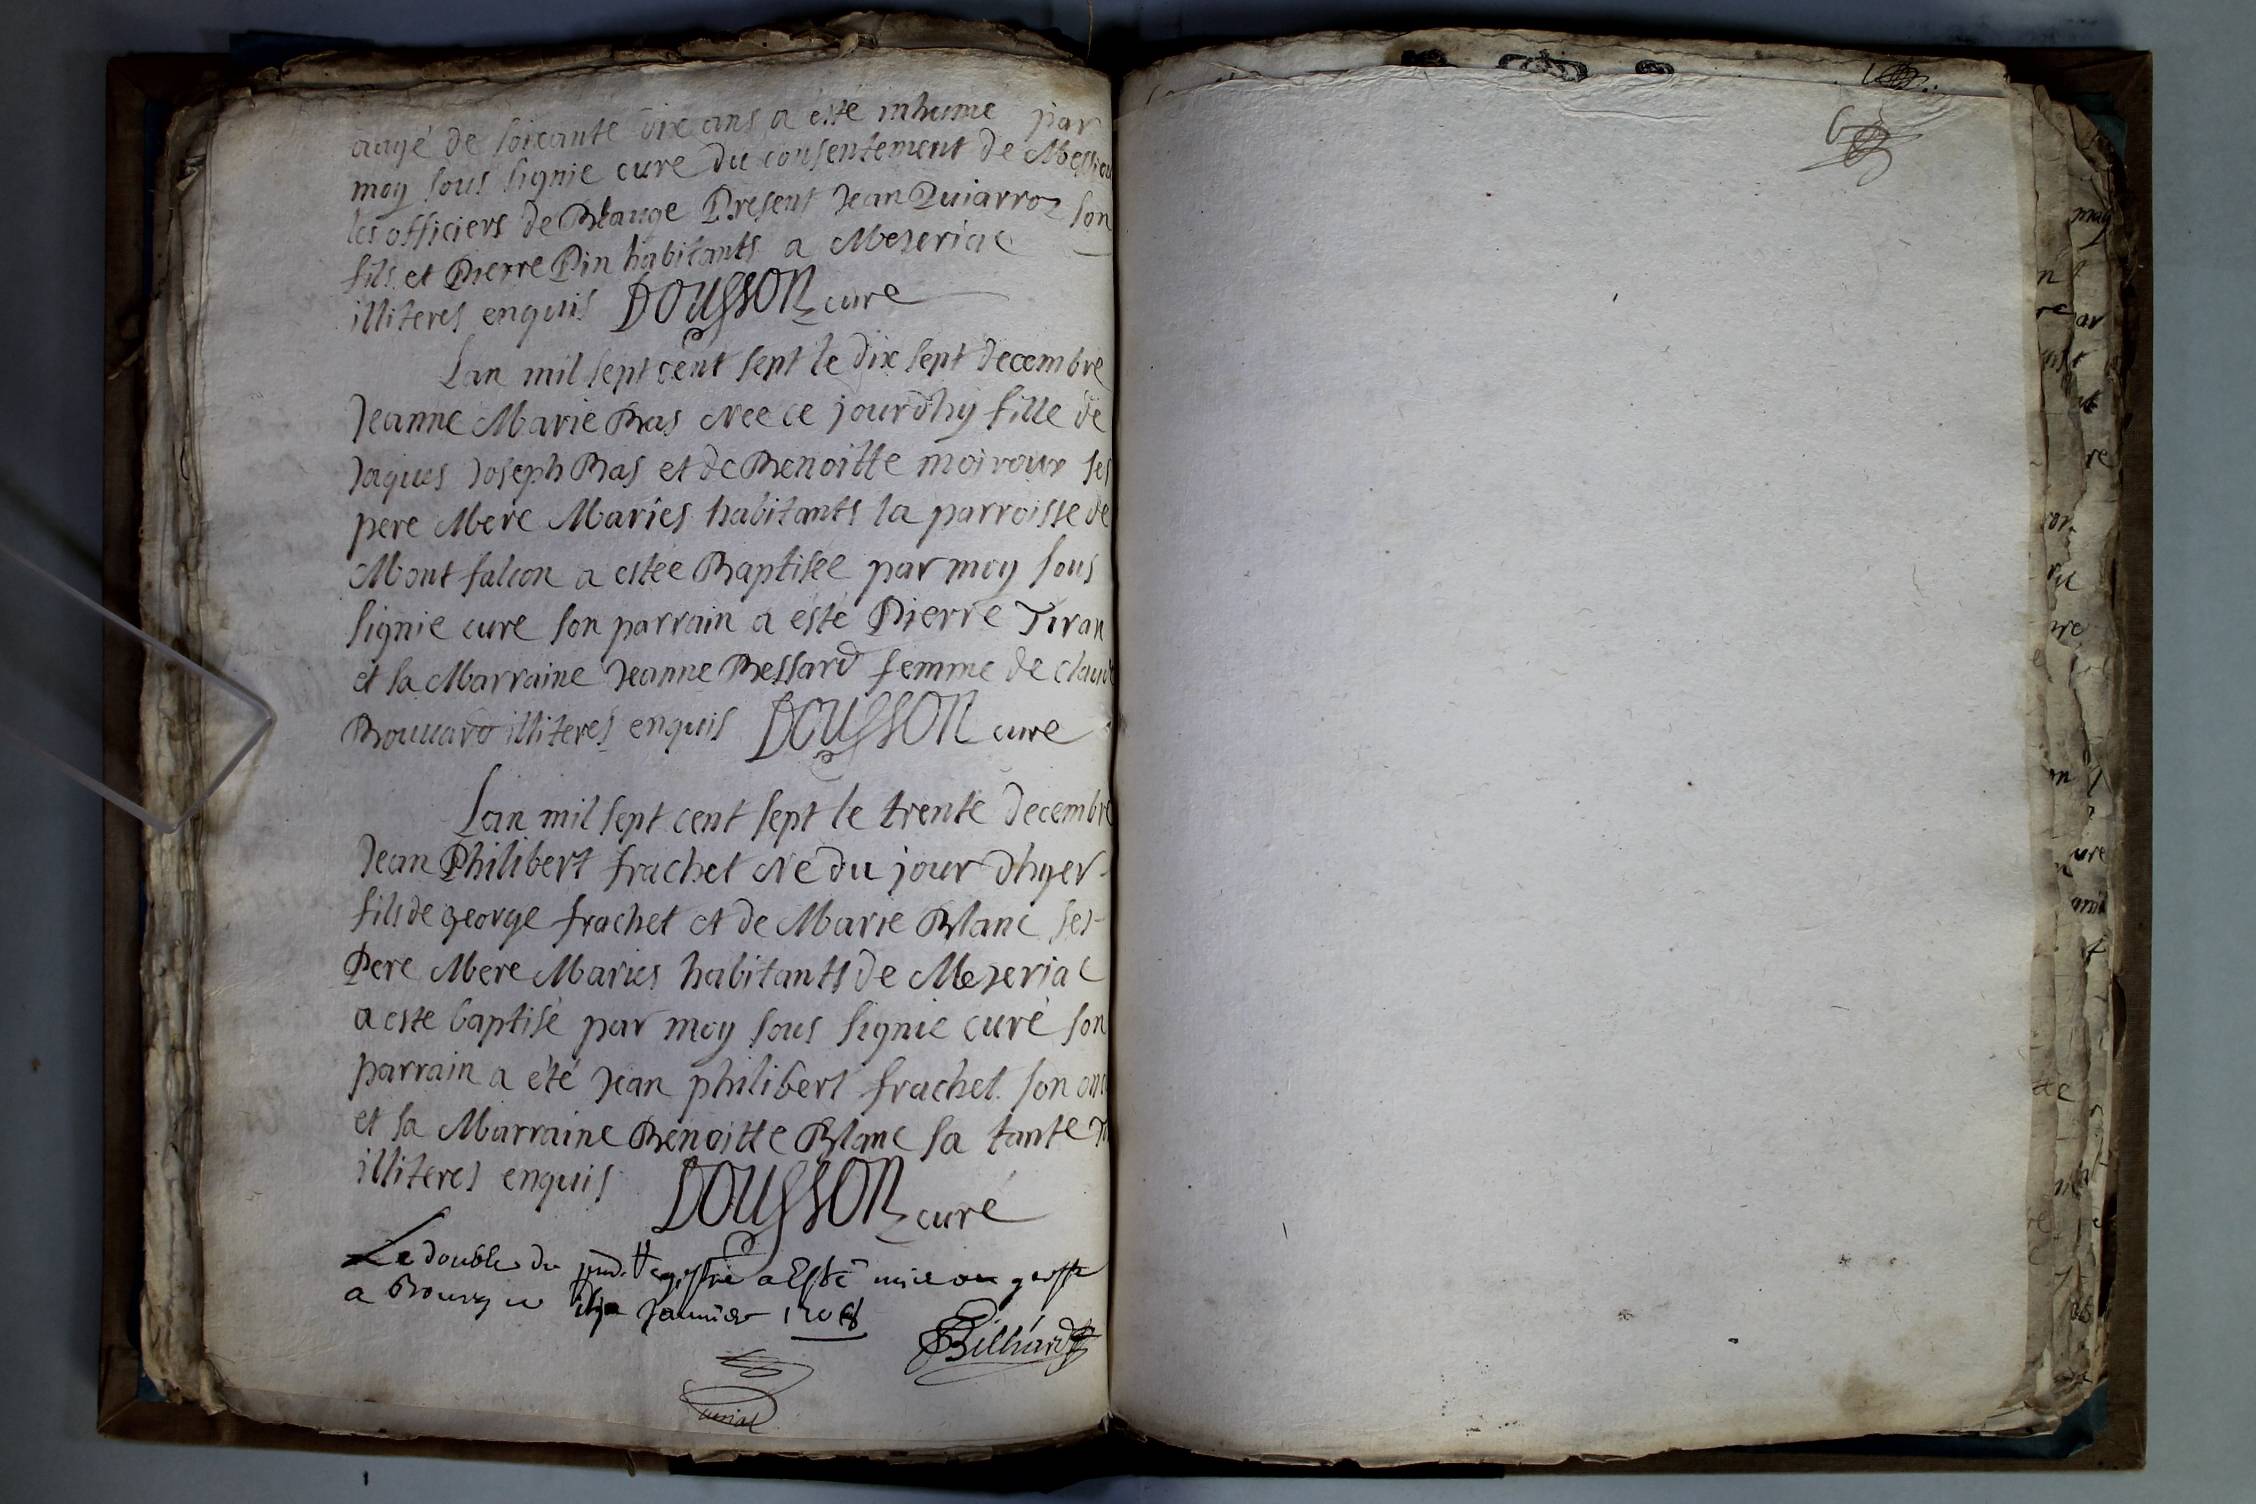 aagé de soixante dix ans a esté inhumé par
moy sous signié curé du consentement de Messieu
les officiers de Blange Present Jean Quiarroz son
fils et Pierre Pin habitants a Mezeriac
illiteres enquis DOUSSON curé
Lan mil sept cent sept le dix sept decembre
Jeanne Marie Bas Nee ce jourdhy fille de
Jaques Joseph Bas et de Benoitte moiroux ses
pere Mere Maries habitants la parroisse de
Mont falcon a estée Baptisée par moy sous
signie cure son parrain a esté Pierre Tiran
et sa Marraine Jeanne Bessard femme de claude
Bouuard illiteres enquis DOUSSON cure
Lan mil sept cent sept le trente decembre
Jean Philibert frachet Ne du jour dhyer
fils de george frachet et de Marie Blanc ses
Pere Mere Maries habitants de Mezeriac
a este baptisé par moy sous signié curé son
parrain a été Jean philibert frachet son
et sa Marraine Benoitte Blanc sa tante
illiteres enquis DOUSSON curé
Le double du pnt. Registre a Esté mis au greffe
a Bourg ce Januier 1708
Billiard
6